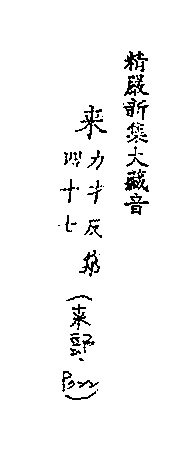 精嚴新集大藏音
来力才反
四十七
(来部、P022)